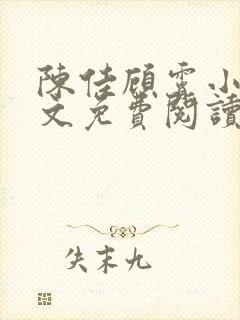 陳佳顧霆小
文免費閱讀
失末九